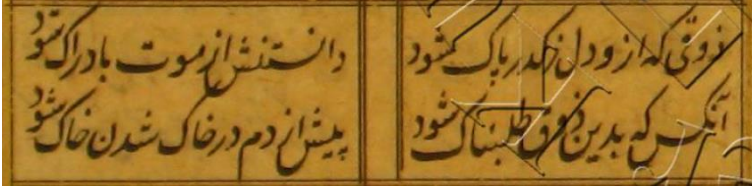 ذوقی که ازو دل ز کدر پاک شود
دانستنش از موت بادراک شود
آنکس که بدین ذوق طلبناک شود
پیش از دم در خاک شدن خاک شود